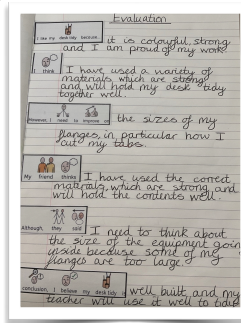 Evaluation
I like my desk tidy because it is colourful, strong
and I am proud of my work.
I think I have used a variety of
materials which are strong
and will hold my desk tidy
together well.
However, I need to improve on the sizes of my
flanges, in particular how I
cut my tabs.
My friend thinks I have used the correct
materials, which are strong, and
will hold the contents well.
Although, they said I need to think about
the size of the equipment goin
inside because some of my
flanges are too large.
conclusion, I believe my desk tidy well built, and my
teacher will use it well to tid